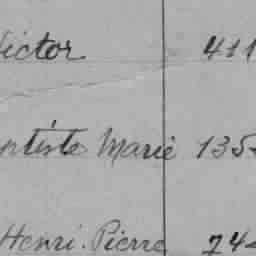 Victor 411
ptiste Marie 135
Henri. Pierre 24